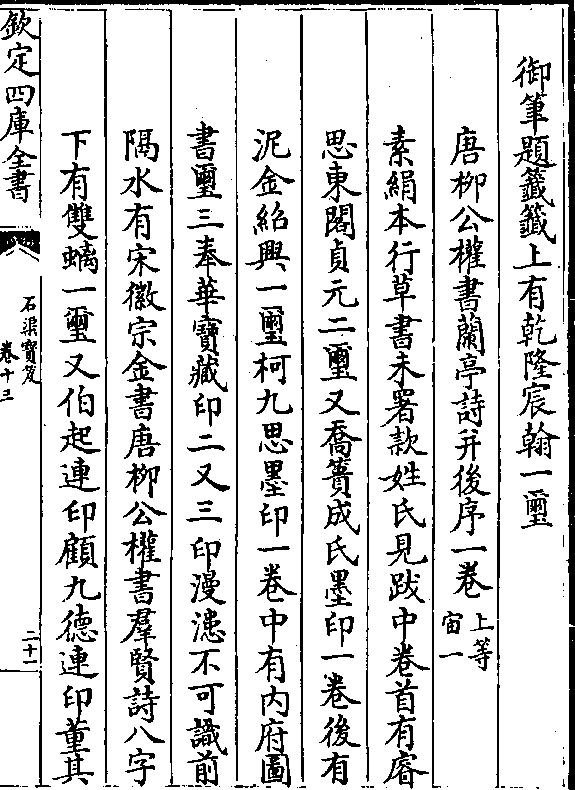 御筆題籤籤上有乾隆宸翰一璽
唐柳公權書蘭亭詩并後序一卷 上等
宙一
素絹本行草書未署款姓氏見跋中卷首有睿
思東閣貞元二璽又喬簣成氏墨印一卷後有
泥金紹興一璽柯九思墨印一卷中有内府圖
書璽三奉華寶藏印二又三印漫漶不可識前
隔水有宋徽宗金書唐柳公權書羣賢詩八字
下有雙螭一璽又伯起連印顧九德連印董其
欽定四庫全書
石渠寶笈
卷十三
二十一